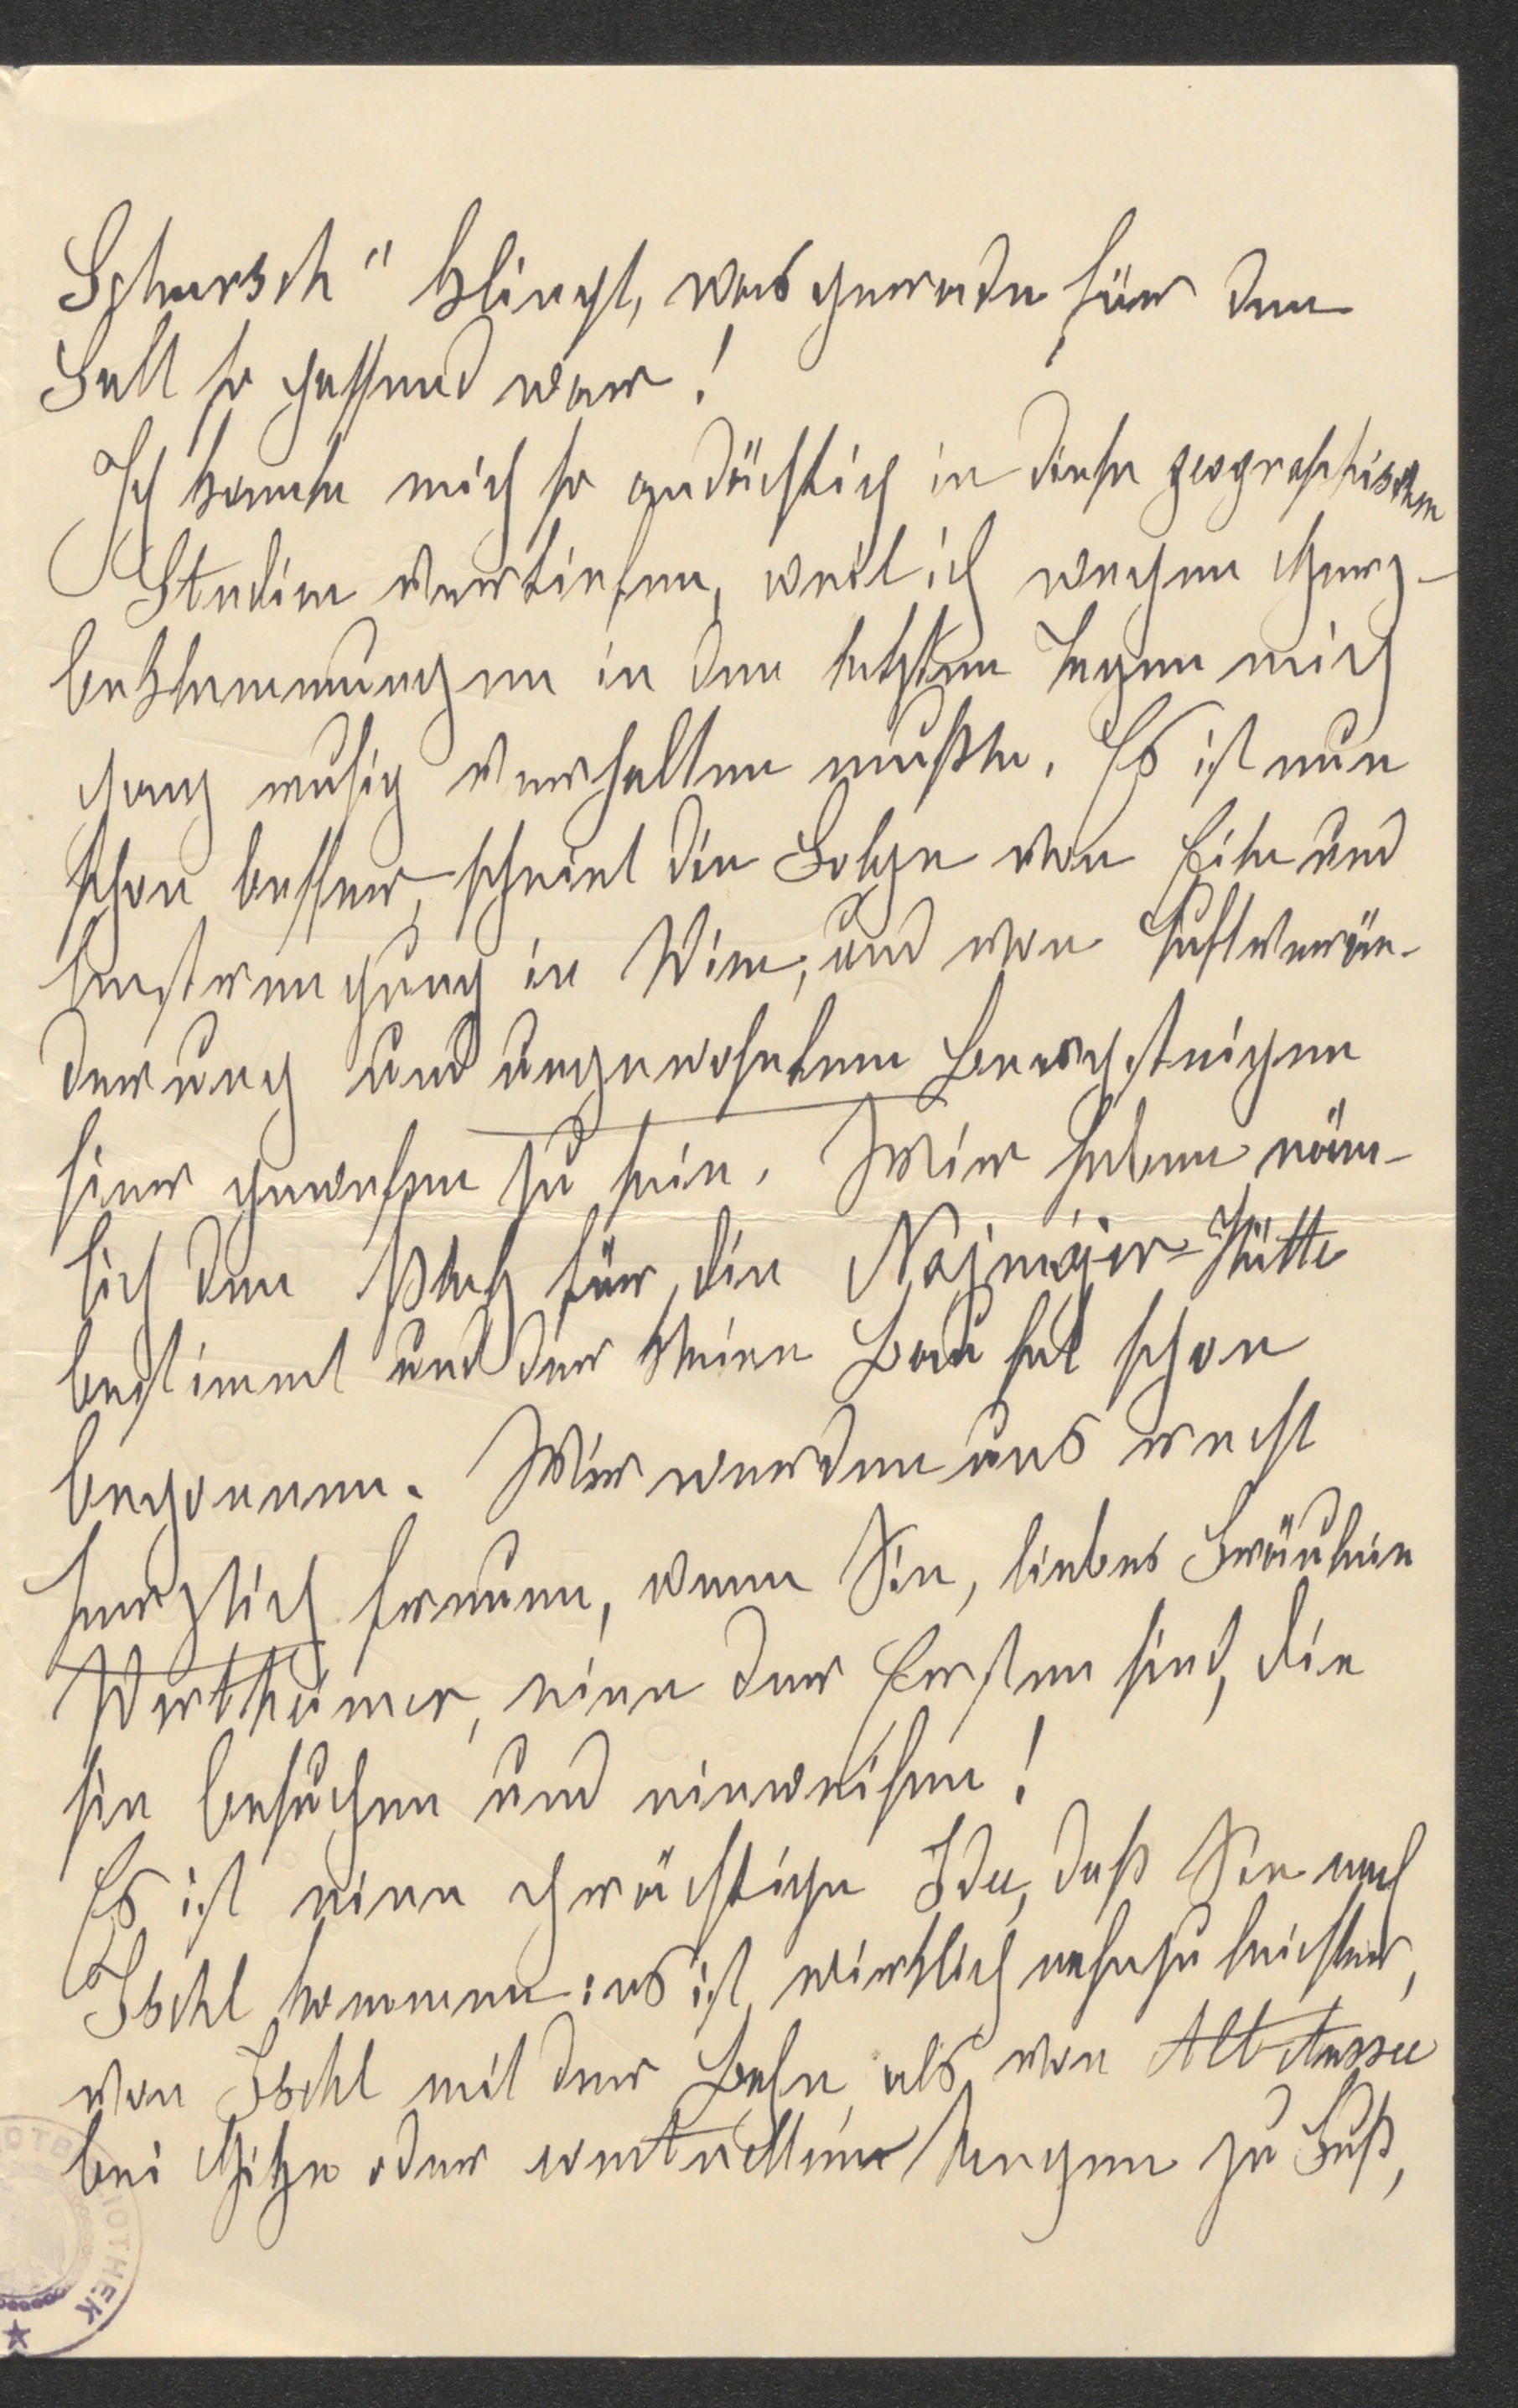 Schursch" klingt, was gerade für den
Fall so passend wär!
Ich konnte mich so andächtig in diese geographischen
Studien vertiefen, weil ich wegen Herz-
beklemmungen in den letzten Tagen mich
ganz ruhig verhalten mußte. Es ist nun
schon besser, scheint die Folge von Eile und
Anstrengung in Wien, und von Luftverän-
derung und ungewohntem Bergsteigen
hier gewesen zu sein. Wir haben näm-
lich den Platz für die Najmájer-Hütte
bestimmt und der kleine Bau hat schon
begonnen. Wir werden uns recht
herzlich freuen, wenn Sie, liebes Fräulein
Wertheimer, eine der Ersten sind, die
sie besuchen und einweihen!
Es ist eine prächtige Idee, daß Sie nach
Ischl kommen: es ist wirklich nahezu leichter,
von Ischl mit der Bahn als von Alt-Aussee
bei Hitze oder eventuellem Regen zu Fuß,
BIOTHEK